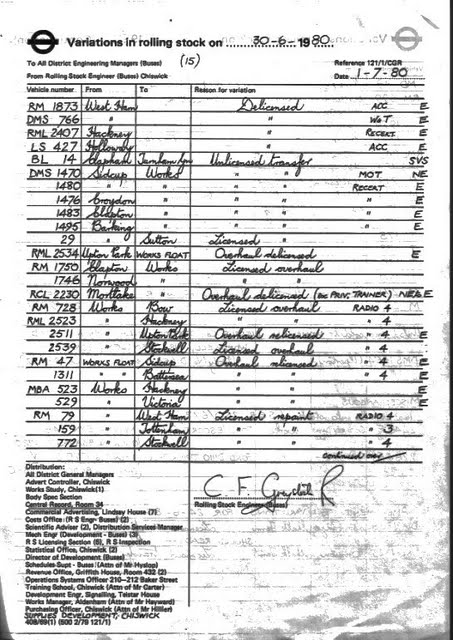 Variations in rolling stock on 30-6-1980
To All District Engineering Managers (Buses) (15) Reference 121/1/CGR
From Rolling Stock Engineer (Buses) Chiswick Date 1-7-80
Vehicle number From To Reason for variation
RM 1873 West Ham Delicensed ACC E
DMS 766 " " W&T E
RML 2407 Hackney " RECERT E
LS 427 Holloway " ACC E
BL 14 Clapham Turnham Grn Unlicensed transfer SVS
DMS 1470 Sidcup Works " " MOT NE
1480 " " " " RECERT E
1476 Croydon " " " " E
1483 Clapton " " " " E
1495 Barking " " " " E
29 " Sutton Licensed "
RML 2534 Upton Park WORKS FLOAT Overhaul delicensed E
RM 1750 Clapton Works Licensed overhaul
1746 Norwood " " "
RCL 2230 Mortlake " Overhaul delicensed (ex PRIV. TRAINER) NE&E
RM 728 Works Bow Licensed overhaul RADIO 4
RML 2523 " Hackney " " " 4
2511 " Upton Park Overhaul relicensed " 4 E
2539 " Stockwell Licensed overhaul " 4
RM 47 WORKS FLOAT Sidcup Overhaul relicensed " 4 E
1311 " " Battersea " " " 4 E
MBA 523 Works Hackney " " E
529 " Victoria " " E
RM 79 " West Ham Licensed repaint RADIO 4
159 " Tottenham " " " 3
772 " Stockwell " " " 4
continued over
Distribution:
All District General Managers
Advert Controller, Chiswick
Works Study, Chiswick(1)
Body Spec Section
Central Record, Room 34
Commercial Advertising, Lindsey House (7)
Costs Office (R S Engr Buses) (2)
Scientific Adviser (2), Distribution Services Manager
Mech Engr (Development - Buses) (3)
R S Licensing Section (6), R S Inspection
Statistical Office, Chiswick (2)
Director of Development (Buses)
Schedules Supt - Buses (Attn of Mr Hyslop)
Revenue Office, Griffith House, Room 432 (2)
Operations Systems Officer 210-212 Baker Street
Training School, Chiswick (Attn of Mr Carter)
Development Engr, Signalling, Telstar House
Works Manager, Aldenham (Attn of Mr Hayward)
Purchasing Officer, Chiswick (Attn of Mr Hillier)
SUPPLIES DEVELOPMENT, CHISWICK
408/69(1) (500 2/79 121/1)
Rolling Stock Engineer (Buses)